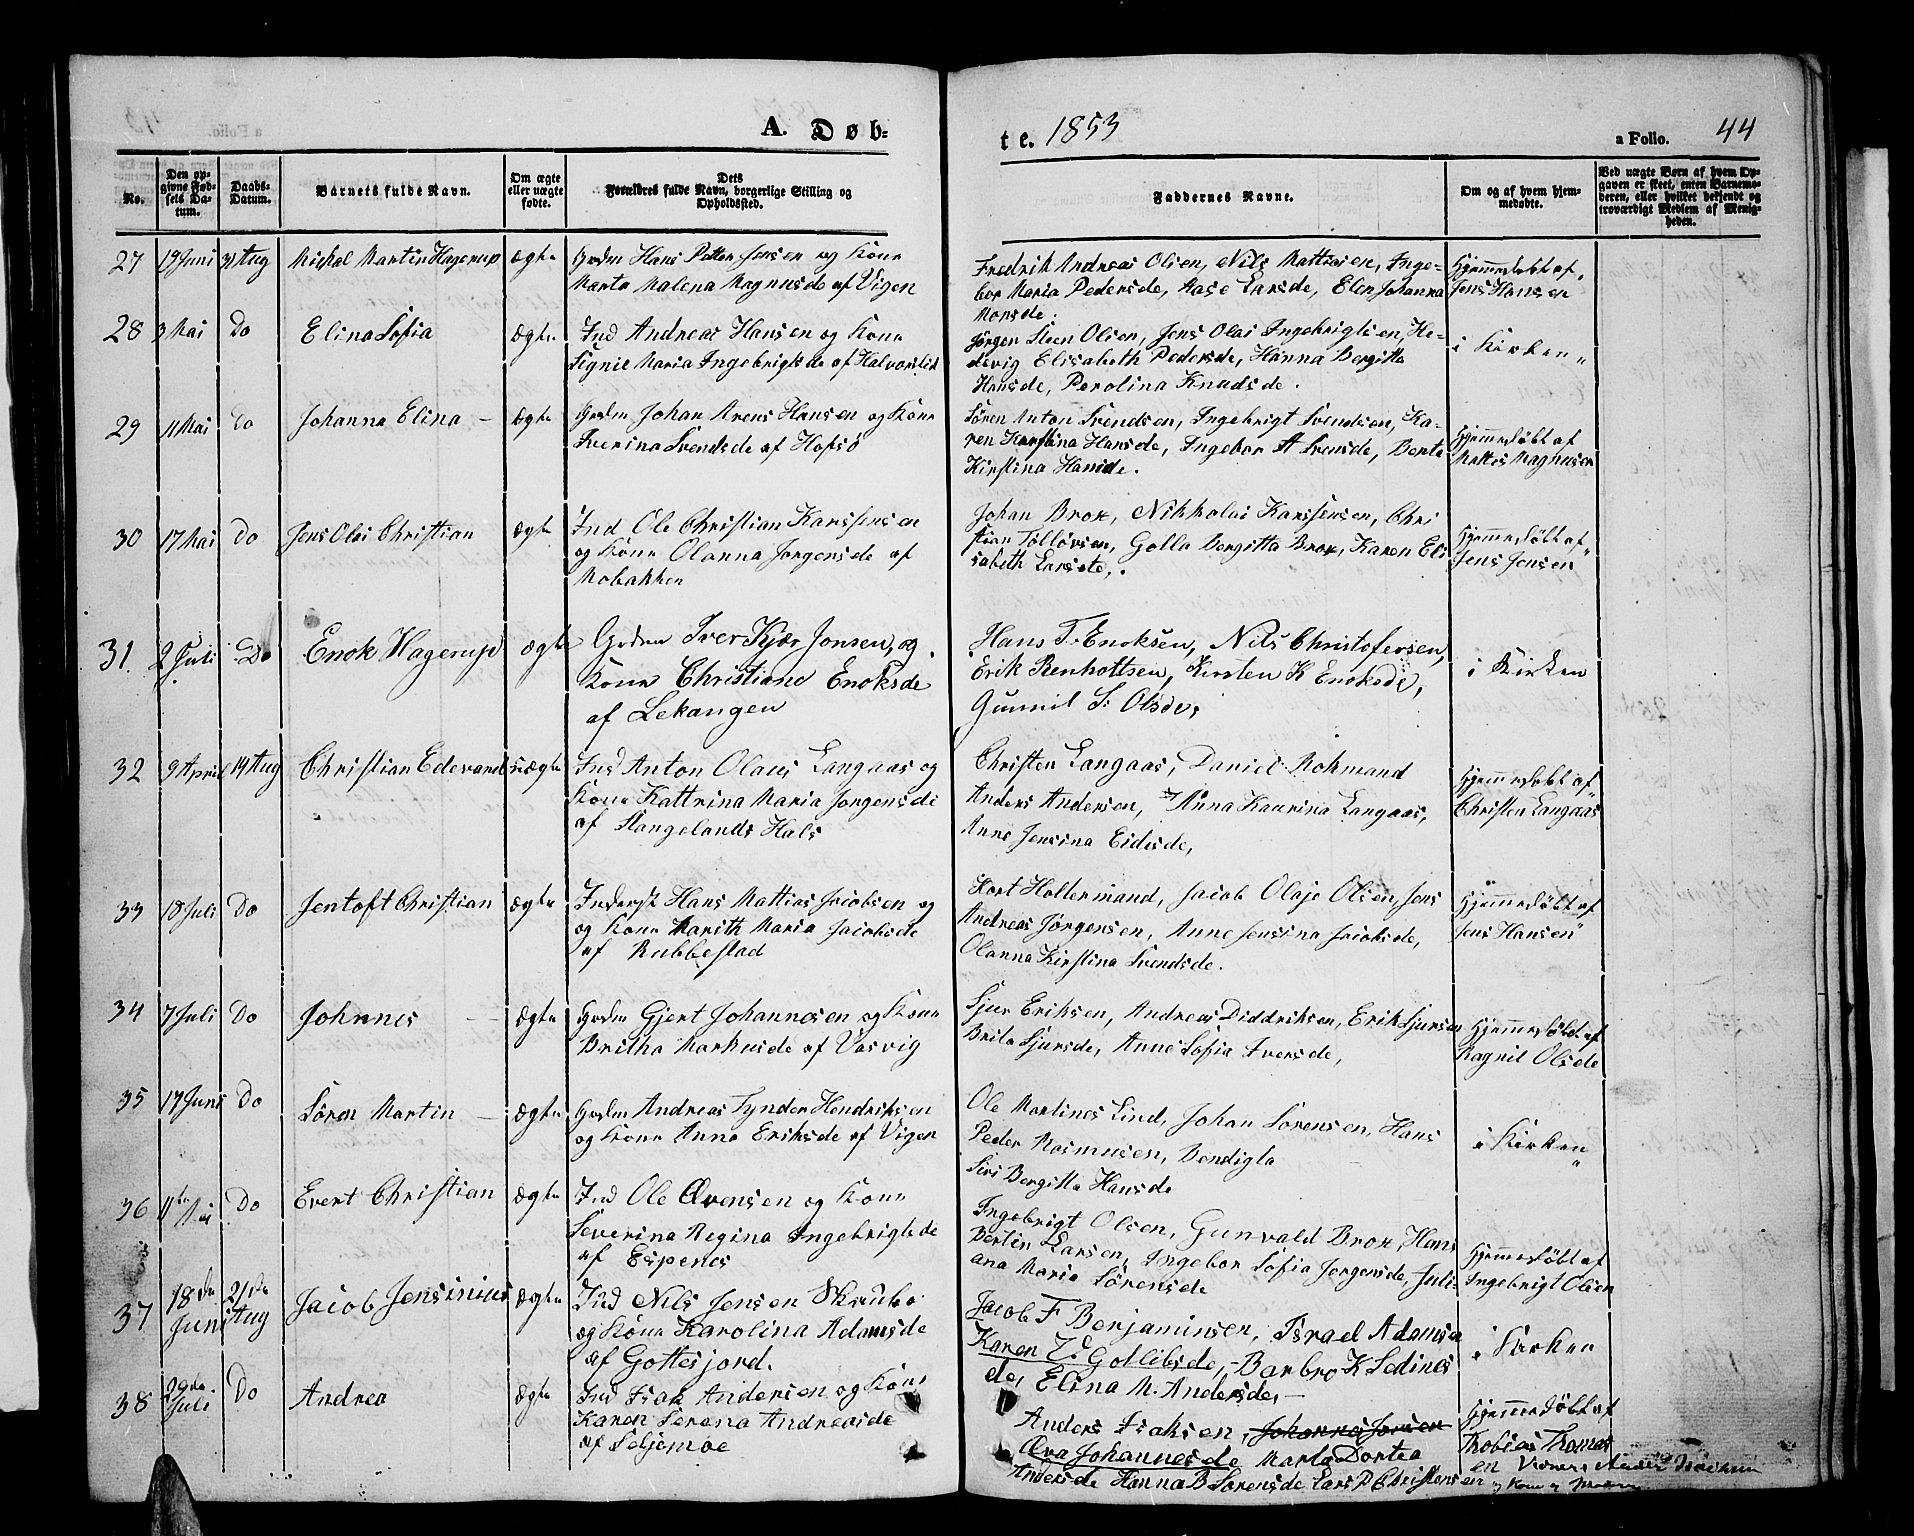 A. Døb-
te. 1853
a Folio. 44
No.
Den op-
givne Fød-
sels Da-
tum.
Daabs-
Datum.
Barnets fulde Navn.
Om ægte
eller uægte
fødte.
Dets
Forældres fulde Navn, borgerlige Stilling og
Opholdssted.
Faddernes Navne.
Om og af hvem hjem-
medøbte.
Ved uægte Børn af hvem Op-
gaven er skeet, enten Barnemo-
deren, eller hvilket bekjendt og
troværdigt Medlem af Menig-
heden.
27 19 Juni 31 Aug Mickal Martin Hagerup ægte Grdm Hans Petter Jensen og Kone
Marta Malena Magnusde af Vigen
Fredrik Andreas Olsen, Nils Mattisen, Inge-
bor Maria Pedersde, Aase Larsde, Elen Johanna
Monsde.
Hjemmedøbt af
Jens Hansen
28 3 Mai Do Elina Sofia ægte Ind Andreas Hansen og Kone
Signie Maria Ingebrigtsde af Halvorslid
Jørgen Steen Olsen, Jens Olai Ingebrigtsen, He-
devig Elisabeth Pedersde, Hanna Bergitte
Hansde, Perolina Knudsde.
i Kirken
29 11 Mai do Johanna Elina - ægte Grdm Johan Arens Hansen og Kone
Sverina Svendsde af Hofsø
Søren Anton Svendsen, Ingebrigt Svendsen, Ka-
ren Kirstina Hansde, Ingebor A Svensde, Berte
Kirstina Hansde.
Hjemmedøbt af
Mattis Magnusen
30 17 Mai Do Jens Olai Christian ægte Ind Ole Christian Karssensen
og Kone Olanna Jørgensde af
Mobakken
Johan Brox, Nikkolai Karssensen, Chri
stian Tolløvsen, Golla Bergitta Brox, Karen Eli
sabeth Larsde,.
Hjemmedøbt af
Jens Jensen
31. 2 Juli Do Enok Hagerup ægte Grdm Iver Kjær Jonsen, og
Kone Christiane Enoksde
af Lekangen
Hans T. Enoksen, Nils Christofersen,
Erik Renhottsen, Kirsten K Enoksde,
Gunnil S. Olsde,
i Kirken
32 9 April 14 Aug Christian Edevard uægte Ind Anton Olaus Langaas og
Kone Kattrina Maria Jørgensde
af Stangelands Hals
Christen Langaas, Daniel Rokmand
Anders Andersen, Anna Kaurina Langaas,
Anne Jensina Eidesde,
Hjemmedøbt af
Christen Langaas
33 18 Juli Do Jentoft Christian ægte Inderst Hans Mattias Jacobsen og
og Kone Marith Maria Jacobsde
af Rubbestad
Kort Holtermand, Jacob Olaje Olsen, Jens
Andreas Jørgensen, Anne Jensina Jacobsde,
Olanna Kirstina Svendsde.
Hjemmedøbt af
Jens Hansen
34 7 Juli Do Johnnes - ægte Grdm Gjert Johannesen og Kone
Britha Markusde af Vasvig
Sjur Eriksen, Andreas Diddriksen, Erik Sjursen
Brita Sjursde, Anne Sofia Iversde,
Hjemmedøbt af
Ragnil Olsde
35 17 Juni Do Søren Martin - ægte Grdm Andreas Tynder Hendriksen
og Kone Anna Eriksde af Vigen
Ole Martines Lind, Johan Sørensen, Hans
Peder Rasmusen, Bendigta -
Siri Bergitta Hansde
i Kirken
36 11te Mai Do Evert Christian ægte Ind Ole Evensen og Kone
Severina Regina Ingebrigtsde
af Espenes
Ingebrigt Olsen, Gunvald Brox, Hans
Bertin Larsen, Ingebor Sofia Jørgensde, Juli-
ana Maria Sørensde
Hjemmedøbt af
Ingebrigt Olsen
37 18de Juni 21de Aug Jacob Jensinius ægte Ind Nils Jensen Skrubø
og Kone Karolina Adamsde
af Gottesjord.
Jacob F Benjaminsen, Israel Adamsen
Karen E. Gotlibsde, - Barbro K Sedines
de, Elina M. Andersde, -
i Kirken
38 29de Juli Do Andrea ægte Ind Isak Andersen og Kone
Karen Serena Andreasde
af Seljemoe
Anders Isaksen, Johannes Jonsen
Eva Johannesde Marta Dortea
Andersde Hanna B Sørensde Lars P Christensen
Hjemmedøbt af
Thobias Thomas
en